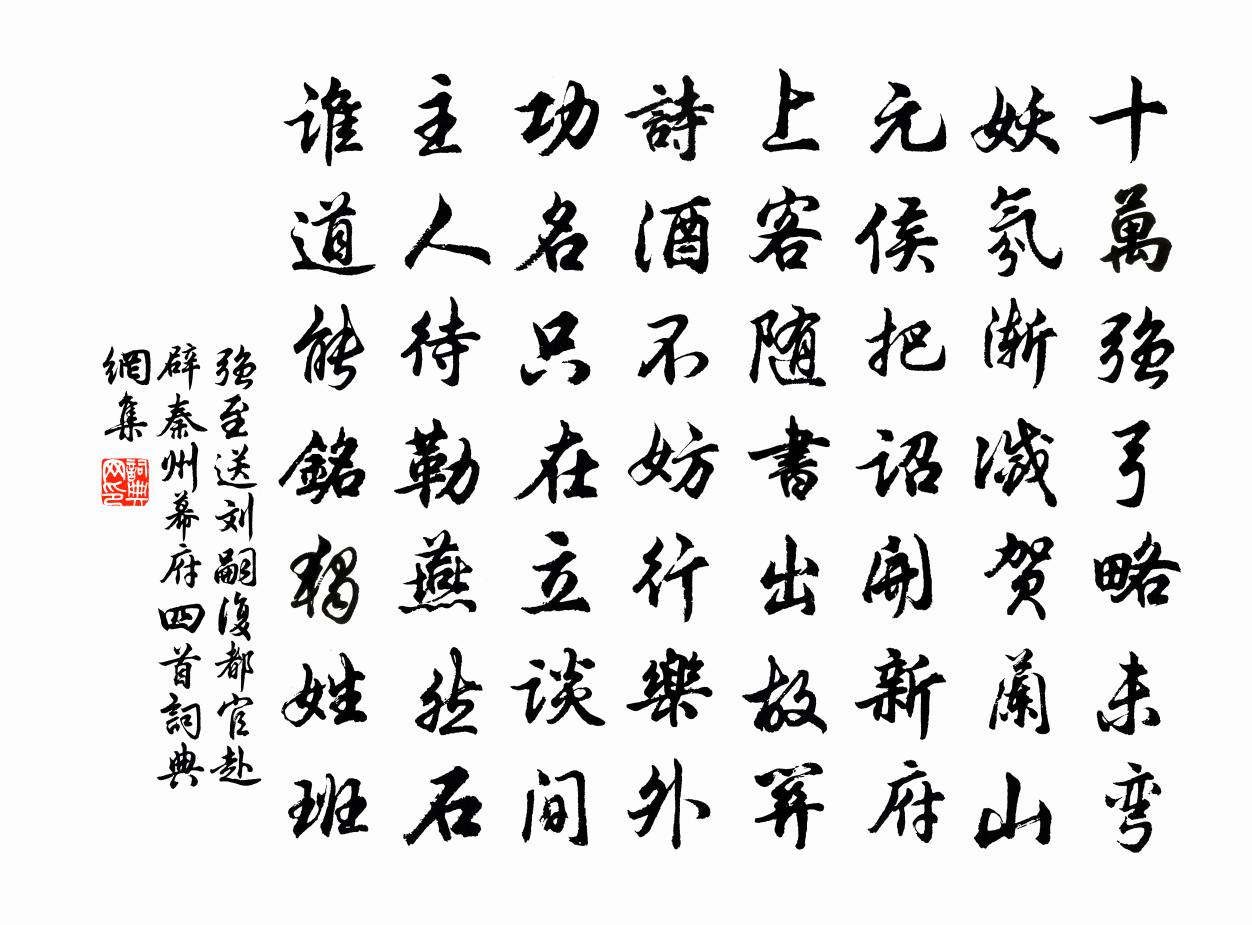 十萬强弓略未弯
妖氛渐滅贺蘭山
元侯把诏開新府
上客随書出故關
詩酒不妨行樂外
功名只在立谈间
主人待勒燕然石
谁道能銘獨姓班
强至送刘嗣復都官赴
辟秦州幕府四首詞典
網集
詞典网印